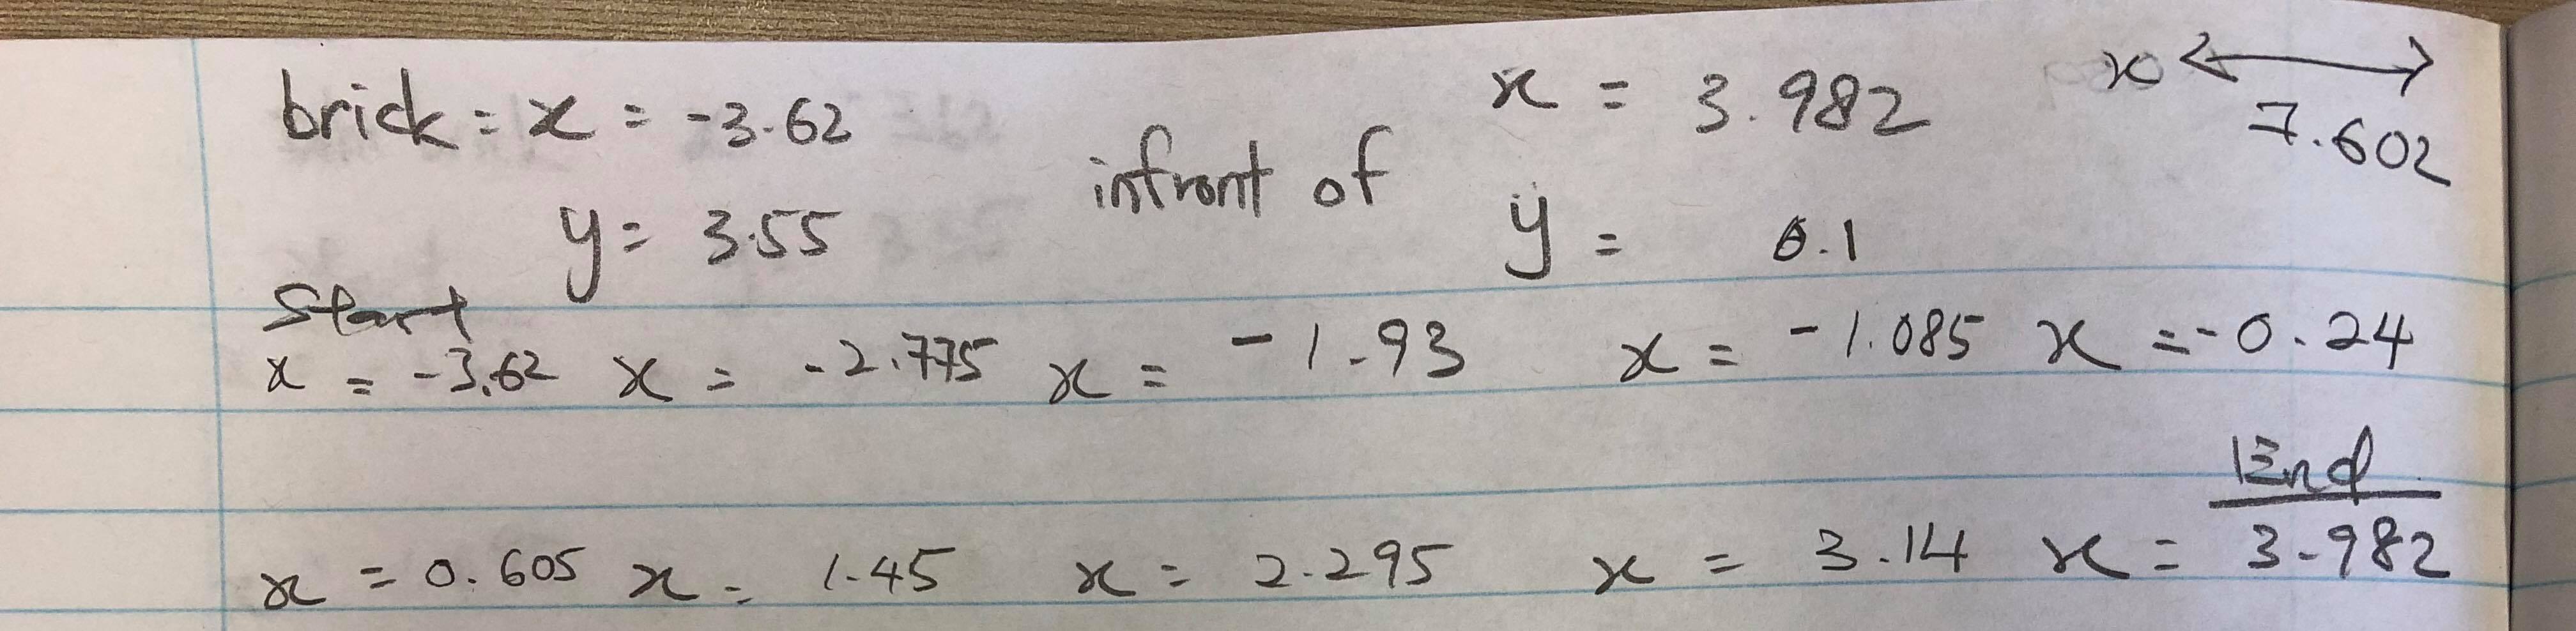 brick = x = -3.62 infront of x = 3.982 x ↔ 7.602
y = 3.55 y = 0.1
Start
x = -3.62 x = -2.775 x = -1.93 x = -1.085 x = -0.24
End
x = 0.605 x = 1.45 x = 2.295 x = 3.14 x = 3.982